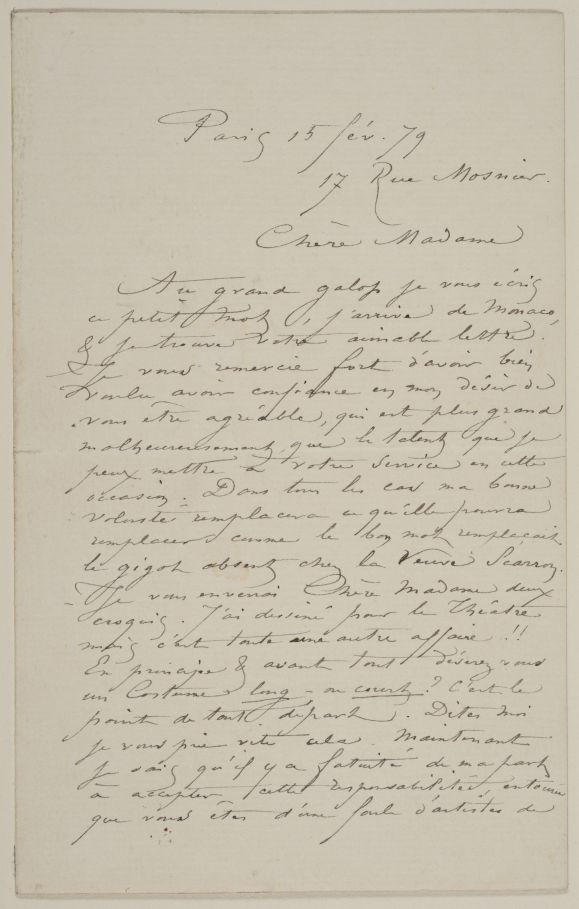 Paris 15 fév. 79
17 Rue Mosnier.
Chère Madame
Au grand galop je vous écris
ce petit mot, j'arrive de Monaco,
& je trouve votre aimable lettre.
Je vous remercie fort d'avoir bien
voulu avoir confiance en mon désir de
vous être agréable, qui est plus grand
malheureusement que le talent que je
peux mettre à votre service en cette
occasion. Dans tous les cas ma bonne
volonté remplacera ce qu'elle pourra
remplacer comme le bon mot remplaçait
le gigot absent chez la Veuve Scarron.
Je vous enverrai Chère Madame deux
croquis. J'ai dessiné pour le Théâtre
mais c'est toute une autre affaire !!
En principe & avant tout désirez vous
un Costume long - ou court ? C'est le
point de tout départ. Dites moi
je vous prie vite cela. Maintenant
je sais qu'il y a fatuité de ma part
à accepter cette responsabilité, entourée
que vous êtes d'une foule d'artistes de